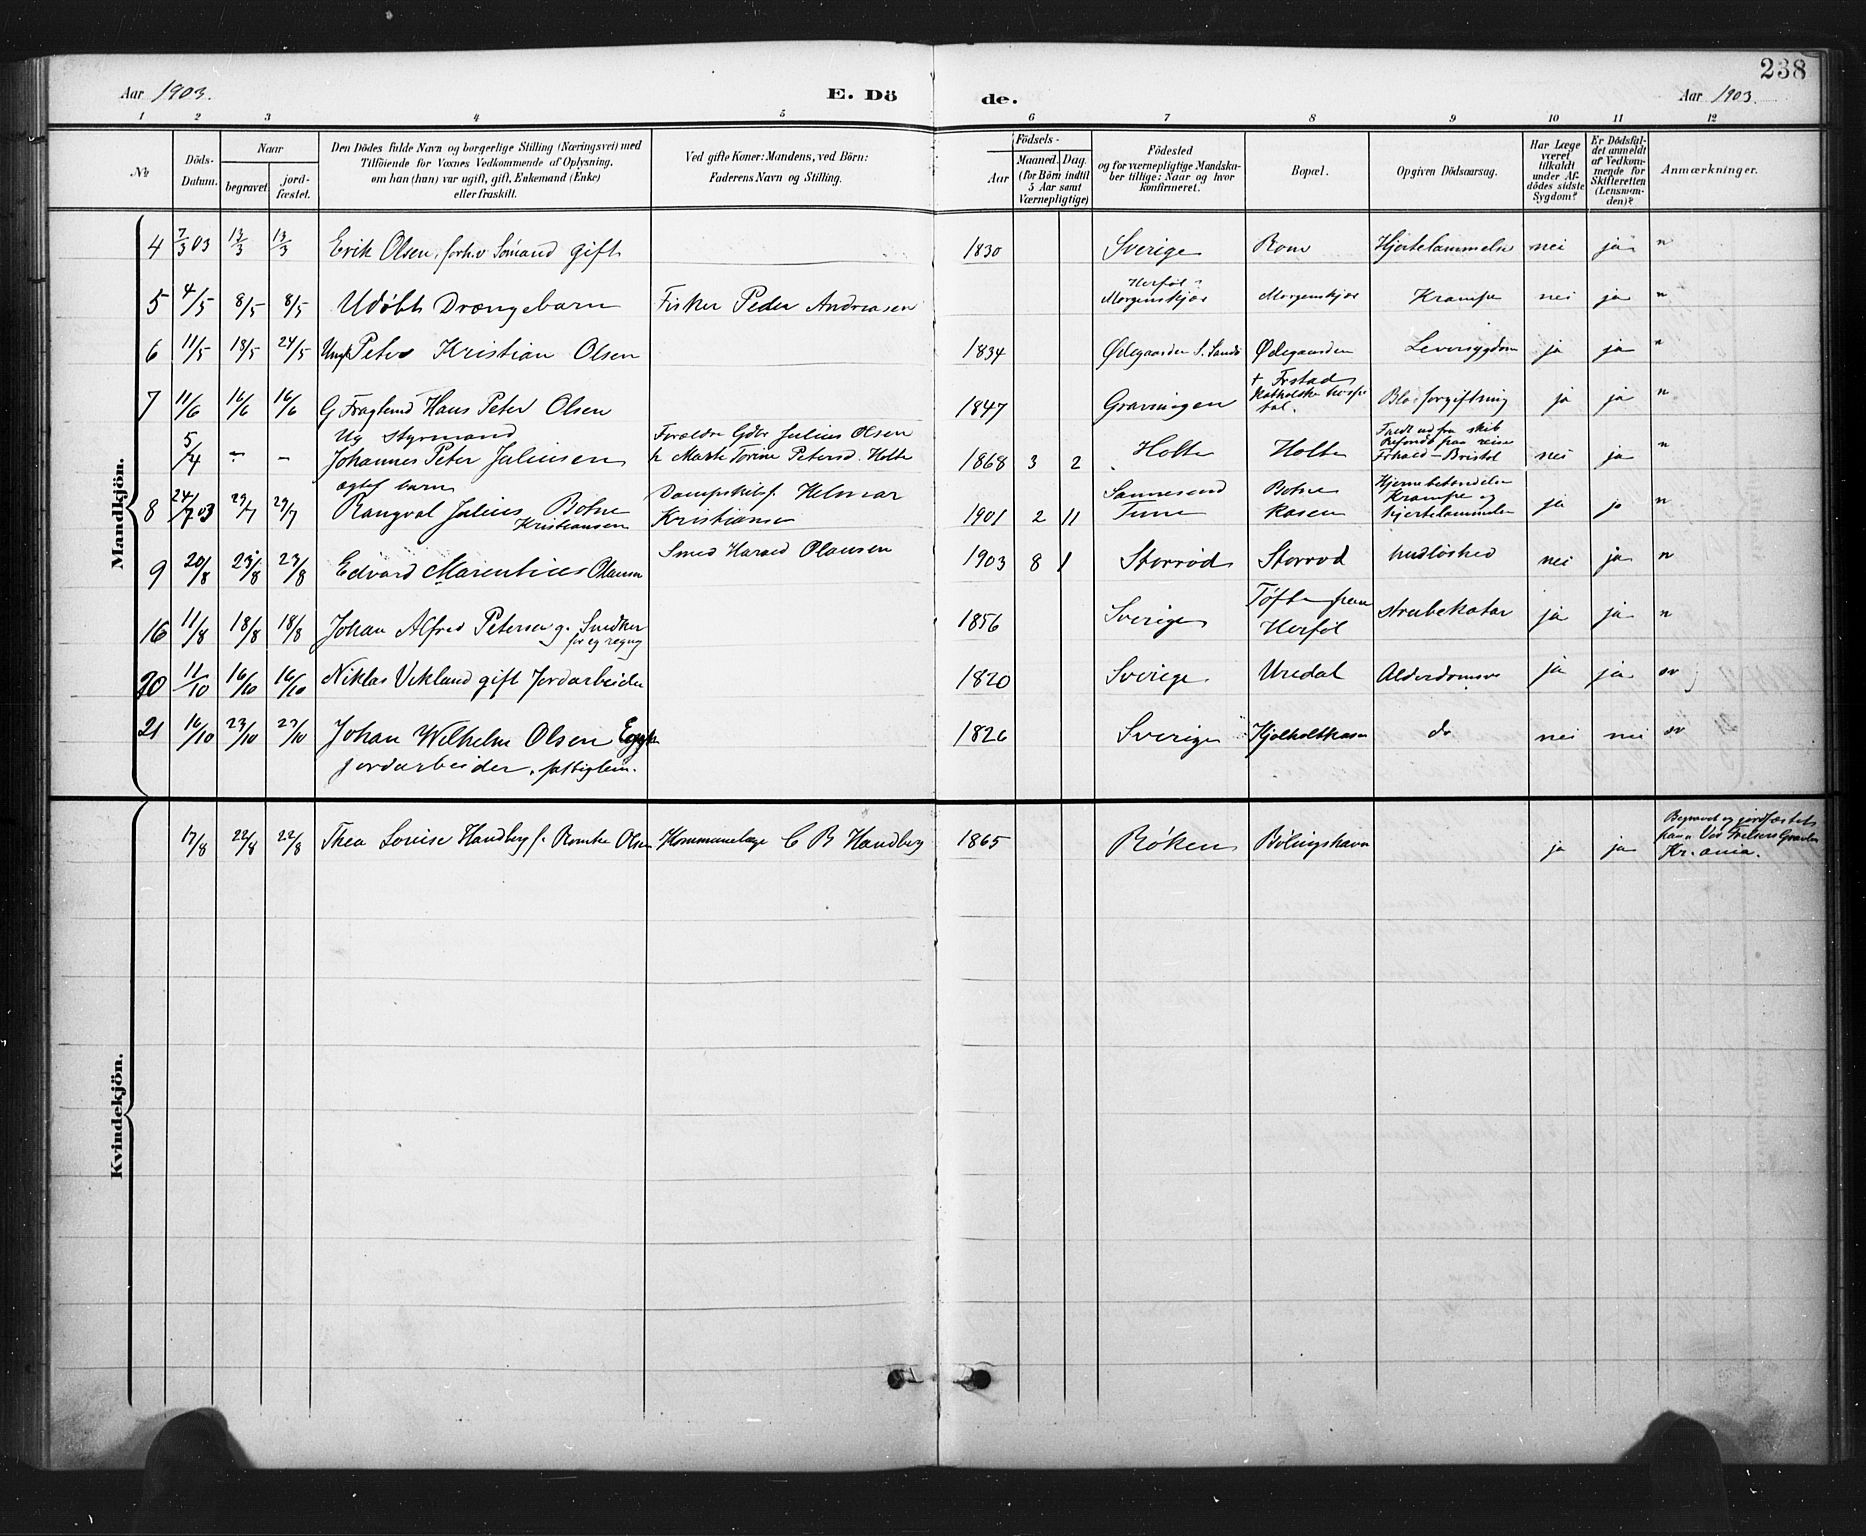 238
Aar 1903. E. Dö de. Aar 1903.
1 2 3 4 5 6 7 8 9 10 11 12
No
Döds-Datum.
Naar
begravet.
jord-fæstet.
Den Dödes fulde Navn og borgerlige Stilling (Næringsvei) med
Tilföiende for Voxnes Vedkommende af Oplysning,
om han (hun) var ugift, gift, Enkemand (Enke)
eller fraskilt.
Ved gifte Koner: Mandens, ved Börn:
Faderens Navn og Stilling.
Födsels-
Aar
Maaned. Dag.
(for Börn indtil
5 Aar samt
Værnepligtige)
Födested
og for værnepligtige Mandska-
ber tillige: Naar og hvor
konfirmeret.
Bopæl.
Opgiven Dödsaarsag.
Har Læge
været
tilkaldt
under Af-
dödes sidste
Sygdom?
Er Dödsfal-
det anmeldt
af Vedkom-
mende for
Skifteretten
(Lensman-
den)?
Anmærkninger.
Mandkjön.
4 7/3 03 13/3 13/3 Erik Olsen, forhv Sömand gift 1830 Sverige Rom Hjertelammelse nei ja n
5 4/5 8/5 8/5 Udøbt Drængebarn Fisker Peder Andreasen Herføl Morgenskjær Morgenskjær Krampe nei ja n
6 11/5 18/5 24/5 Ungk Peter Kristian Olsen 1834 Ødegaarden S. Sandø Ødegaarden Leversygdom ja ja n
7 11/6 16/6 16/6 G Fraglund Hans Peter Olsen 1847 Gravningen + Frstad Katholske hospital. Blodforgiftning ja ja n
5/4 – – Ug Styrmand
Johannes Peter Juliussen Forældre Gdbr Julius Olsen
h Marte Torine Petersd. Holte 1868 3 2 Holte Holte Faldt ud fra skib
paa reise
Frhald – Bristol nei ja n
8 24/7 03 29/7 29/7 ægtef barn
Rangval Julius Botne
Kristiansen Dampskibsf. Helmar
Kristiansen 1901 2 11 Sannesund
Tune Botne
kasen Hjernebetendelse
Krampe og
hjertelammelse ja ja n
9 20/8 23/8 23/8 Edvard Marentius Olausen Smed Harald Olausen 1903 8 1 Storrød Storrød nei ja n
16 11/8 18/8 18/8 Johan Alfred Petersen g. Snedker
for eg regng 1856 Sverige Tøfte
Herføl strubekatar ja ja n
20 11/10 16/10 16/10 Niklas Vikland gift Jordarbeider 1820 Sverige Uredal Alderdomssv ja ja sv
21 16/10 23/10 23/10 Johan Wilhelm Olsen
Jordarbeider, fattiglem. 1826 Sverige Hjolholtkasen do nei nei sv
Kvindekjön.
17/8 22/8 22/8 Thea Louise Handberg f. Olsen Kommunelæge C B Handberg 1865 Røken Bölingshavn ja ja Begravet og jordfæstet
paa Vor Frelsers Gravlun
Kr.ania.